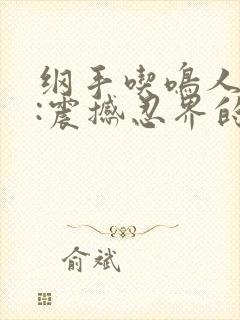 纲手喫鸣人
:震撼忍界的
俞斌